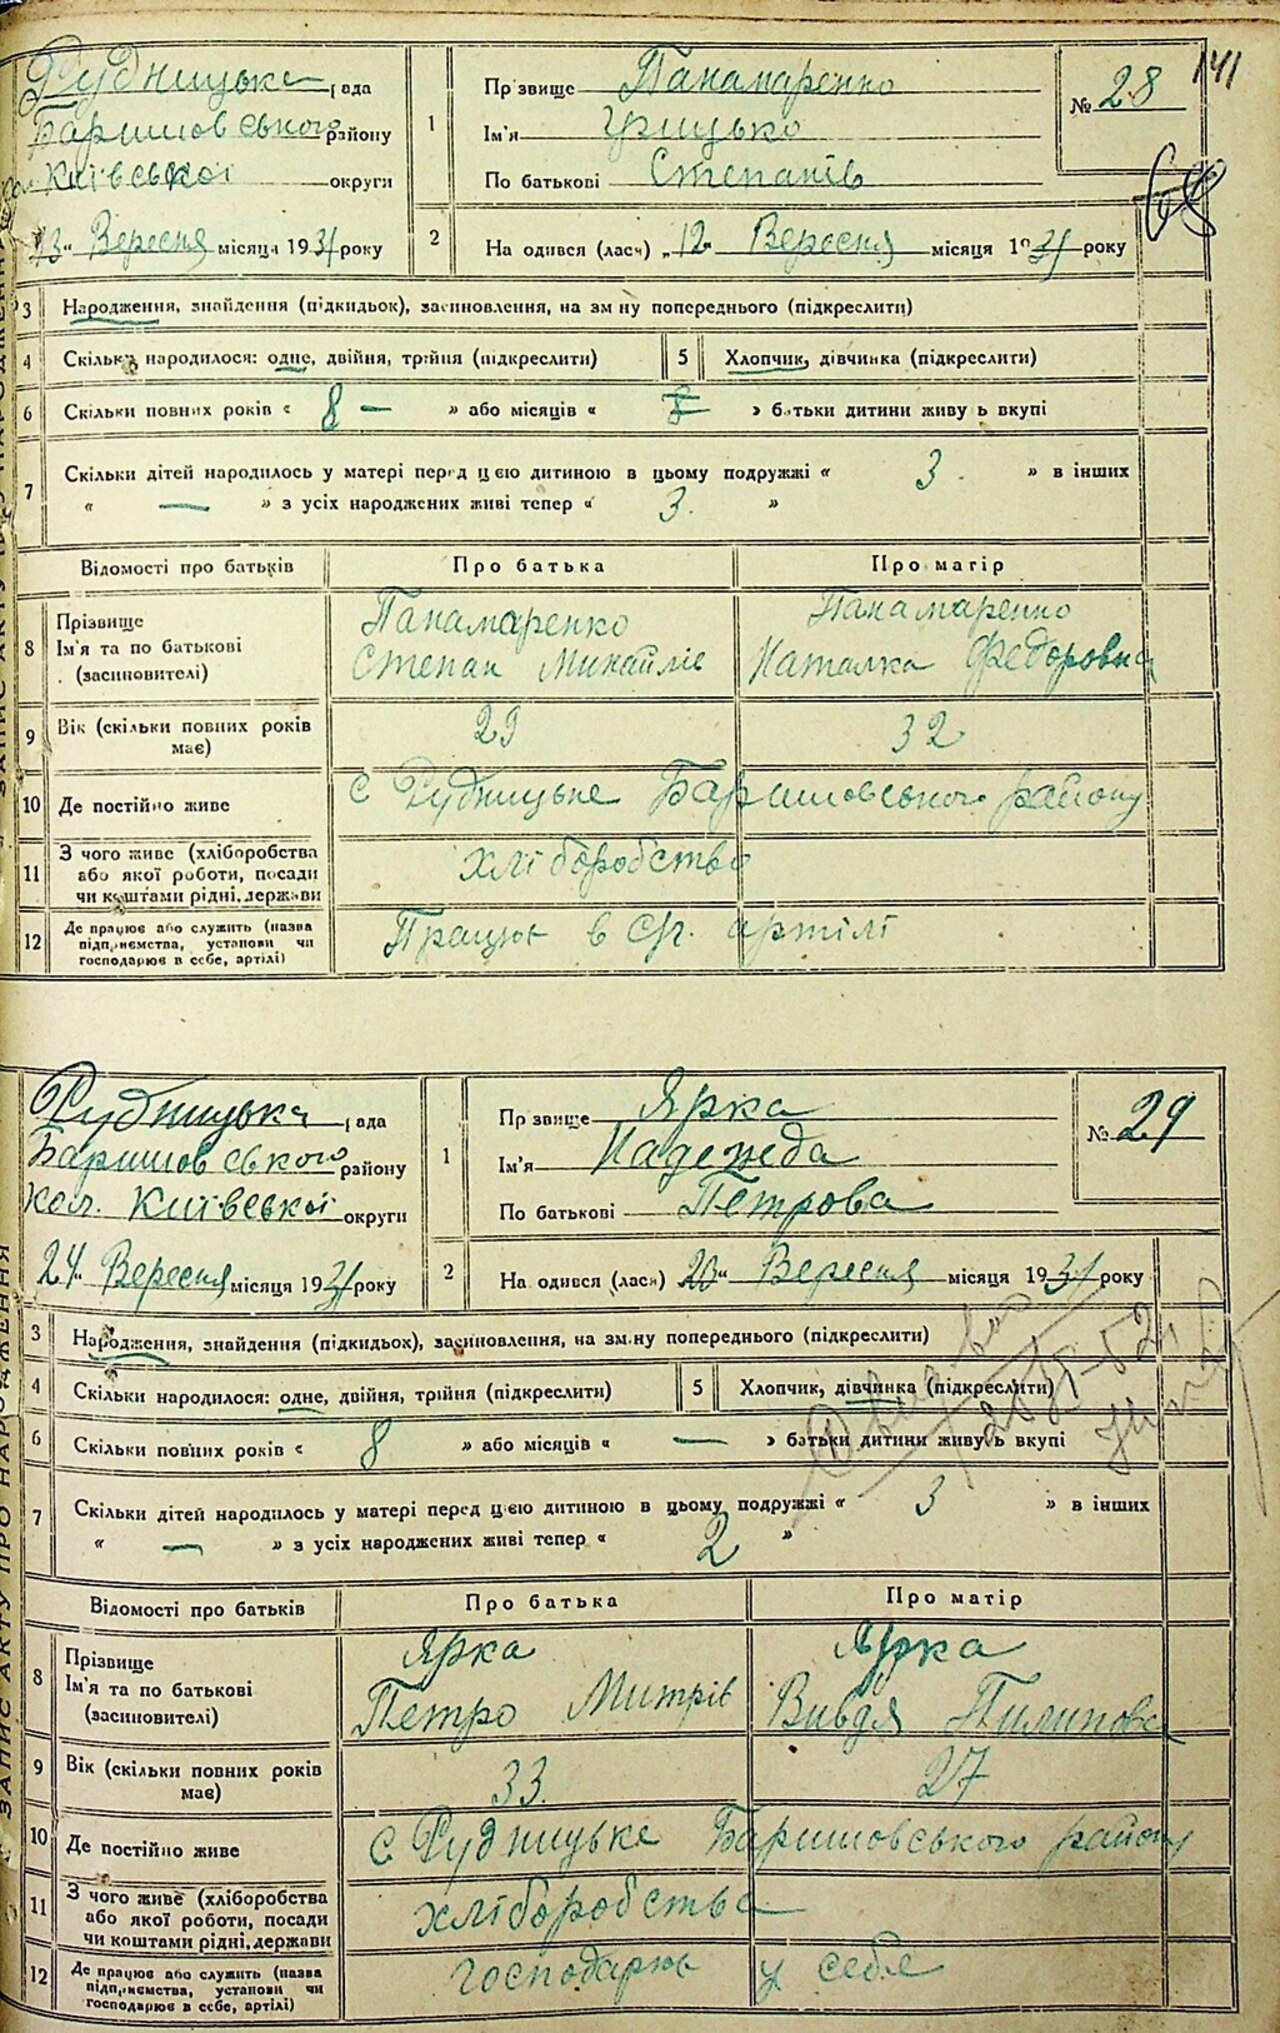 141
Рудницька рада
Баришовського району
кол. Київської округи
13" Вересня місяця 1931 року
1
Прізвище Панамаренко
Ім'я Грицько
По батькові Степанів
№ 28
68
2
На одився (лась) „12" Вересня місяця 1931 року
3 Народження, знайдення (підкидьок), засиновлення, на зміну попереднього (підкреслити)
4 Скільки народилося: одне, двійня, трійня (підкреслити) 5 Хлопчик, дівчинка (підкреслити)
6 Скільки повних років « 8 — » або місяців « » батьки дитини живуть вкупі
7 Скільки дітей народилось у матері перед цією дитиною в цьому подружжі « 3. » в інших
« — » з усіх народжених живі тепер « 3. »
Відомості про батьків Про батька Про матір
8 Прізвище
Ім'я та по батькові
(засиновителі)
Панамаренко
Степан Михайлів
Панамаренко
Наталка Федоровна
9 Вік (скільки повних років
має)
29 32
10 Де постійно живе с Рудницьке Баришовського району
11 З чого живе (хліборобства
або якої роботи, посади
чи коштами рідні, держави
хліборобство
12 Де працює або служить (назва
підприємства, установи чи
господарює в себе, артілі)
Працює в С/г. артілі
ЗАПИС АКТУ ПРО НАРОДЖЕННЯ
Рудницька рада
Баришовського району
кол. Київської округи
24" Вересня місяця 1931 року
1
Прізвище Ярка
Ім'я Надежда
По батькові Петрова
№ 29
2
На одився (лася) 20" Вересня місяця 1931 року
3 Народження, знайдення (підкидьох), засиновлення, на зміну попереднього (підкреслити)
4 Скільки народилося: одне, двійня, трійня (підкреслити) 5 Хлопчик, дівчинка (підкреслити)
6 Скільки повних років « 8 » або місяців « — » батьки дитини живуть вкупі
7 Скільки дітей народилось у матері перед цією дитиною в цьому подружжі « 3 » в інших
« — » з усіх народжених живі тепер « 2 »
Відомості про батьків Про батька Про матір
8 Прізвище
Ім'я та по батькові
(засиновителі)
Ярка
Петро Митрів
Ярка
Вивдя Пилипова
9 Вік (скільки повних років
має)
33. 27
10 Де постійно живе с Рудницьке Баришовського району
11 З чого живе (хліборобства
або якої роботи, посади
чи коштами рідні, держави
хліборобства
12 Де працює або служить (назва
підприємства, установи чи
господарює в себе, артілі)
господарює у себе